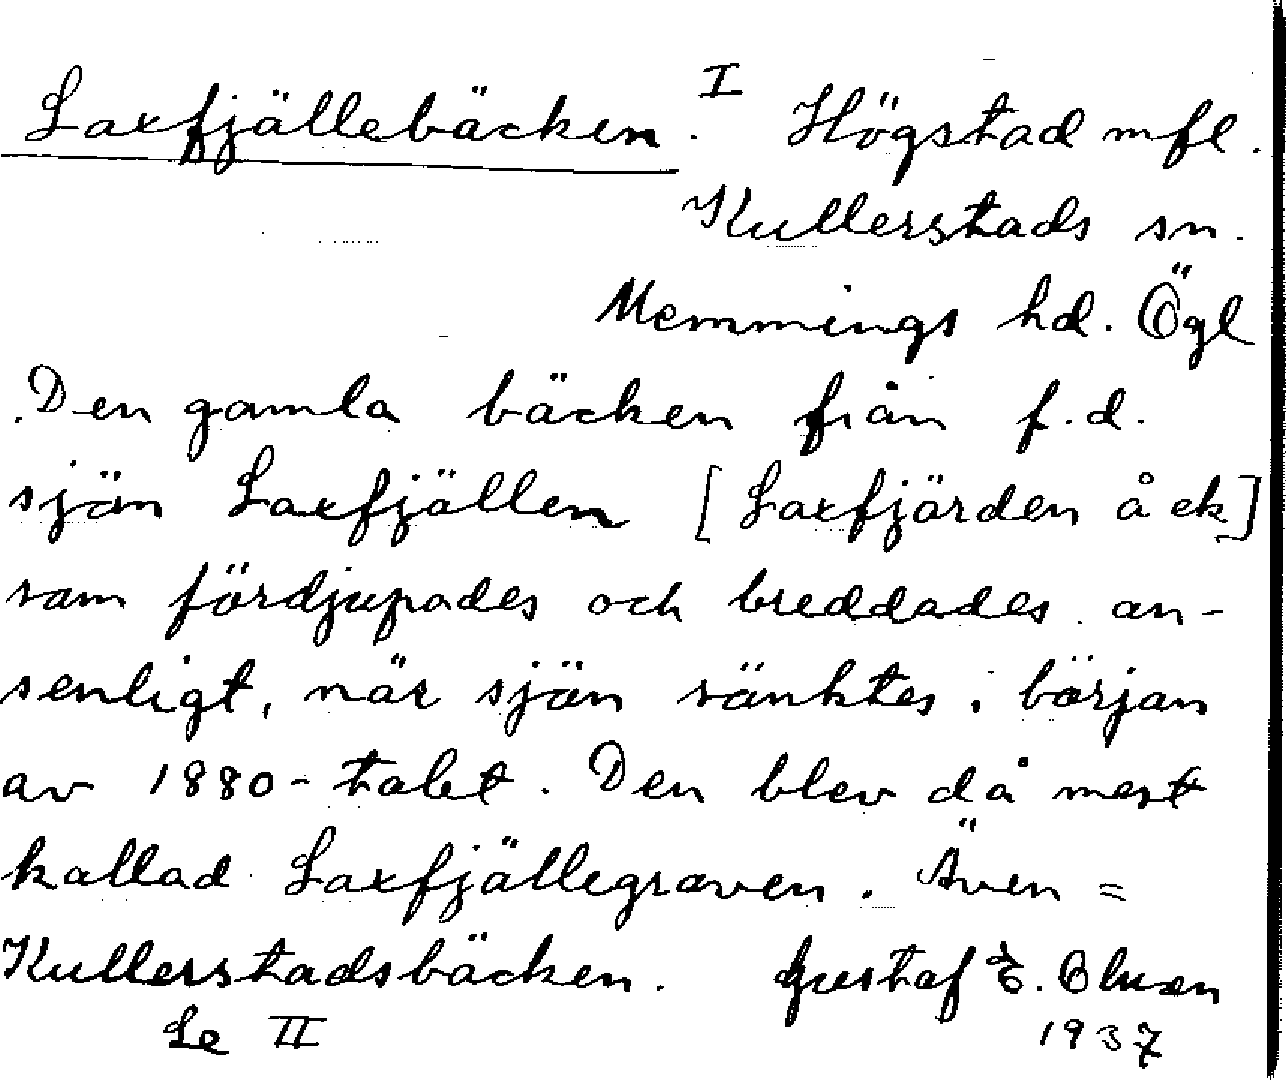 Laxfjällebäcken. I Högstad mfl.
Kullerstads sn.
Memmings hd. Ögl
Den gamla bäcken från f.d.
sjön Laxfjällen [Laxfjärden å ek]
som fördjupades och breddades an-
senligt, när sjön sänktes i början
av 1880-talet. Den blev då mest
kallad Laxfjällegraven. Även =
Kullerstadsbäcken. Gustaf E.
Se II 1937